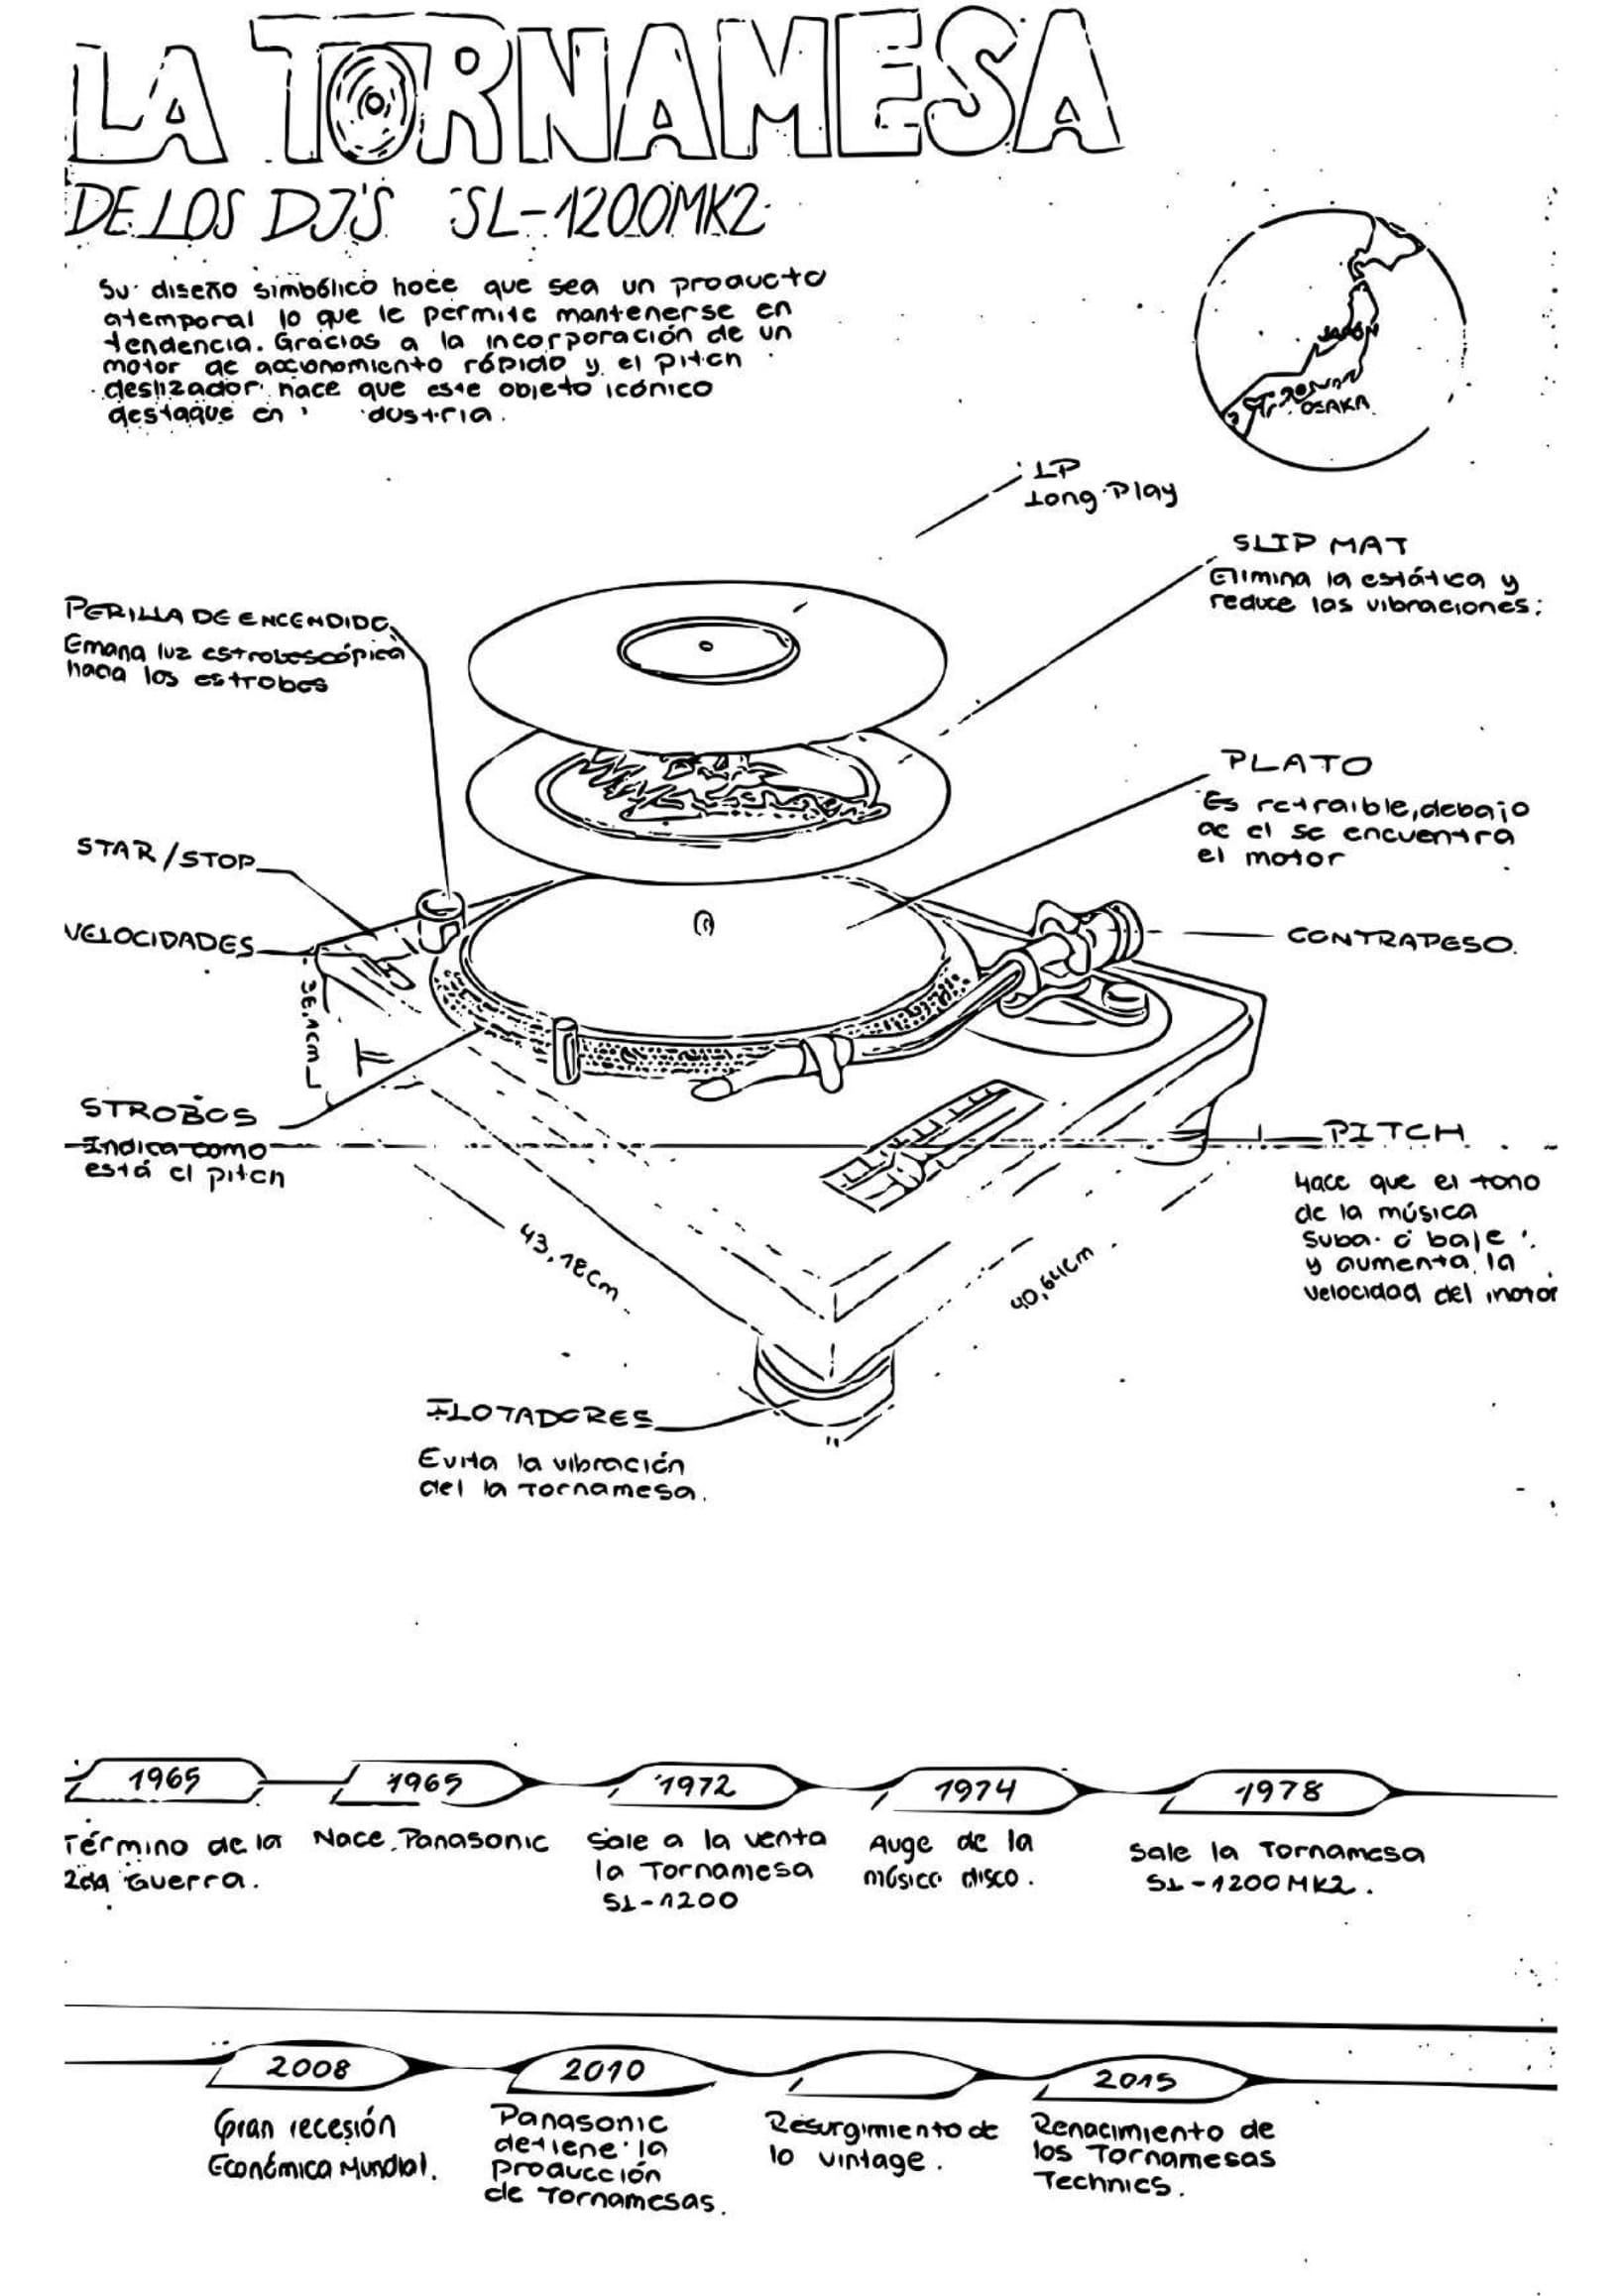 LA TORNAMESA
DE LOS DJ'S SL-1200MK2
Su diseño simbólico hace que sea un producto
atemporal lo que le permite mantenerse en
tendencia. Gracias a la incorporación de un
motor de accionamiento rápido y el pitch
deslizador hace que este objeto icónico
destaque en dustria.
JAPÓN
OSAKA
LP
Long Play
SLIP MAT
Elimina la estática y
reduce las vibraciones.
PERILLA DE ENCENDIDO
Emana luz estroboscópica
hacia los estrobos
PLATO
Es retraible, debajo
de el se encuentra
el motor
STAR/STOP
VELOCIDADES
CONTRAPESO.
36,1cm
STROBOS
Indica como
está el pitch
PITCH
Hace que el tono
de la música
suba o baje
y aumenta la
velocidad del motor
43,18cm
40,64cm
FLOTADORES
Evita la vibración
del la Tornamesa.
1965
1965
1972
1974
1978
Término de la
2da Guerra.
Nace Panasonic
Sale a la venta
la Tornamesa
SL-1200
Auge de la
música disco.
Sale la Tornamesa
SL-1200MK2.
2008
2010
2015
Gran recesión
Económica Mundial.
Panasonic
detiene la
Producción
de Tornamesas.
Resurgimiento de
lo vintage.
Renacimiento de
los Tornamesas
Technics.